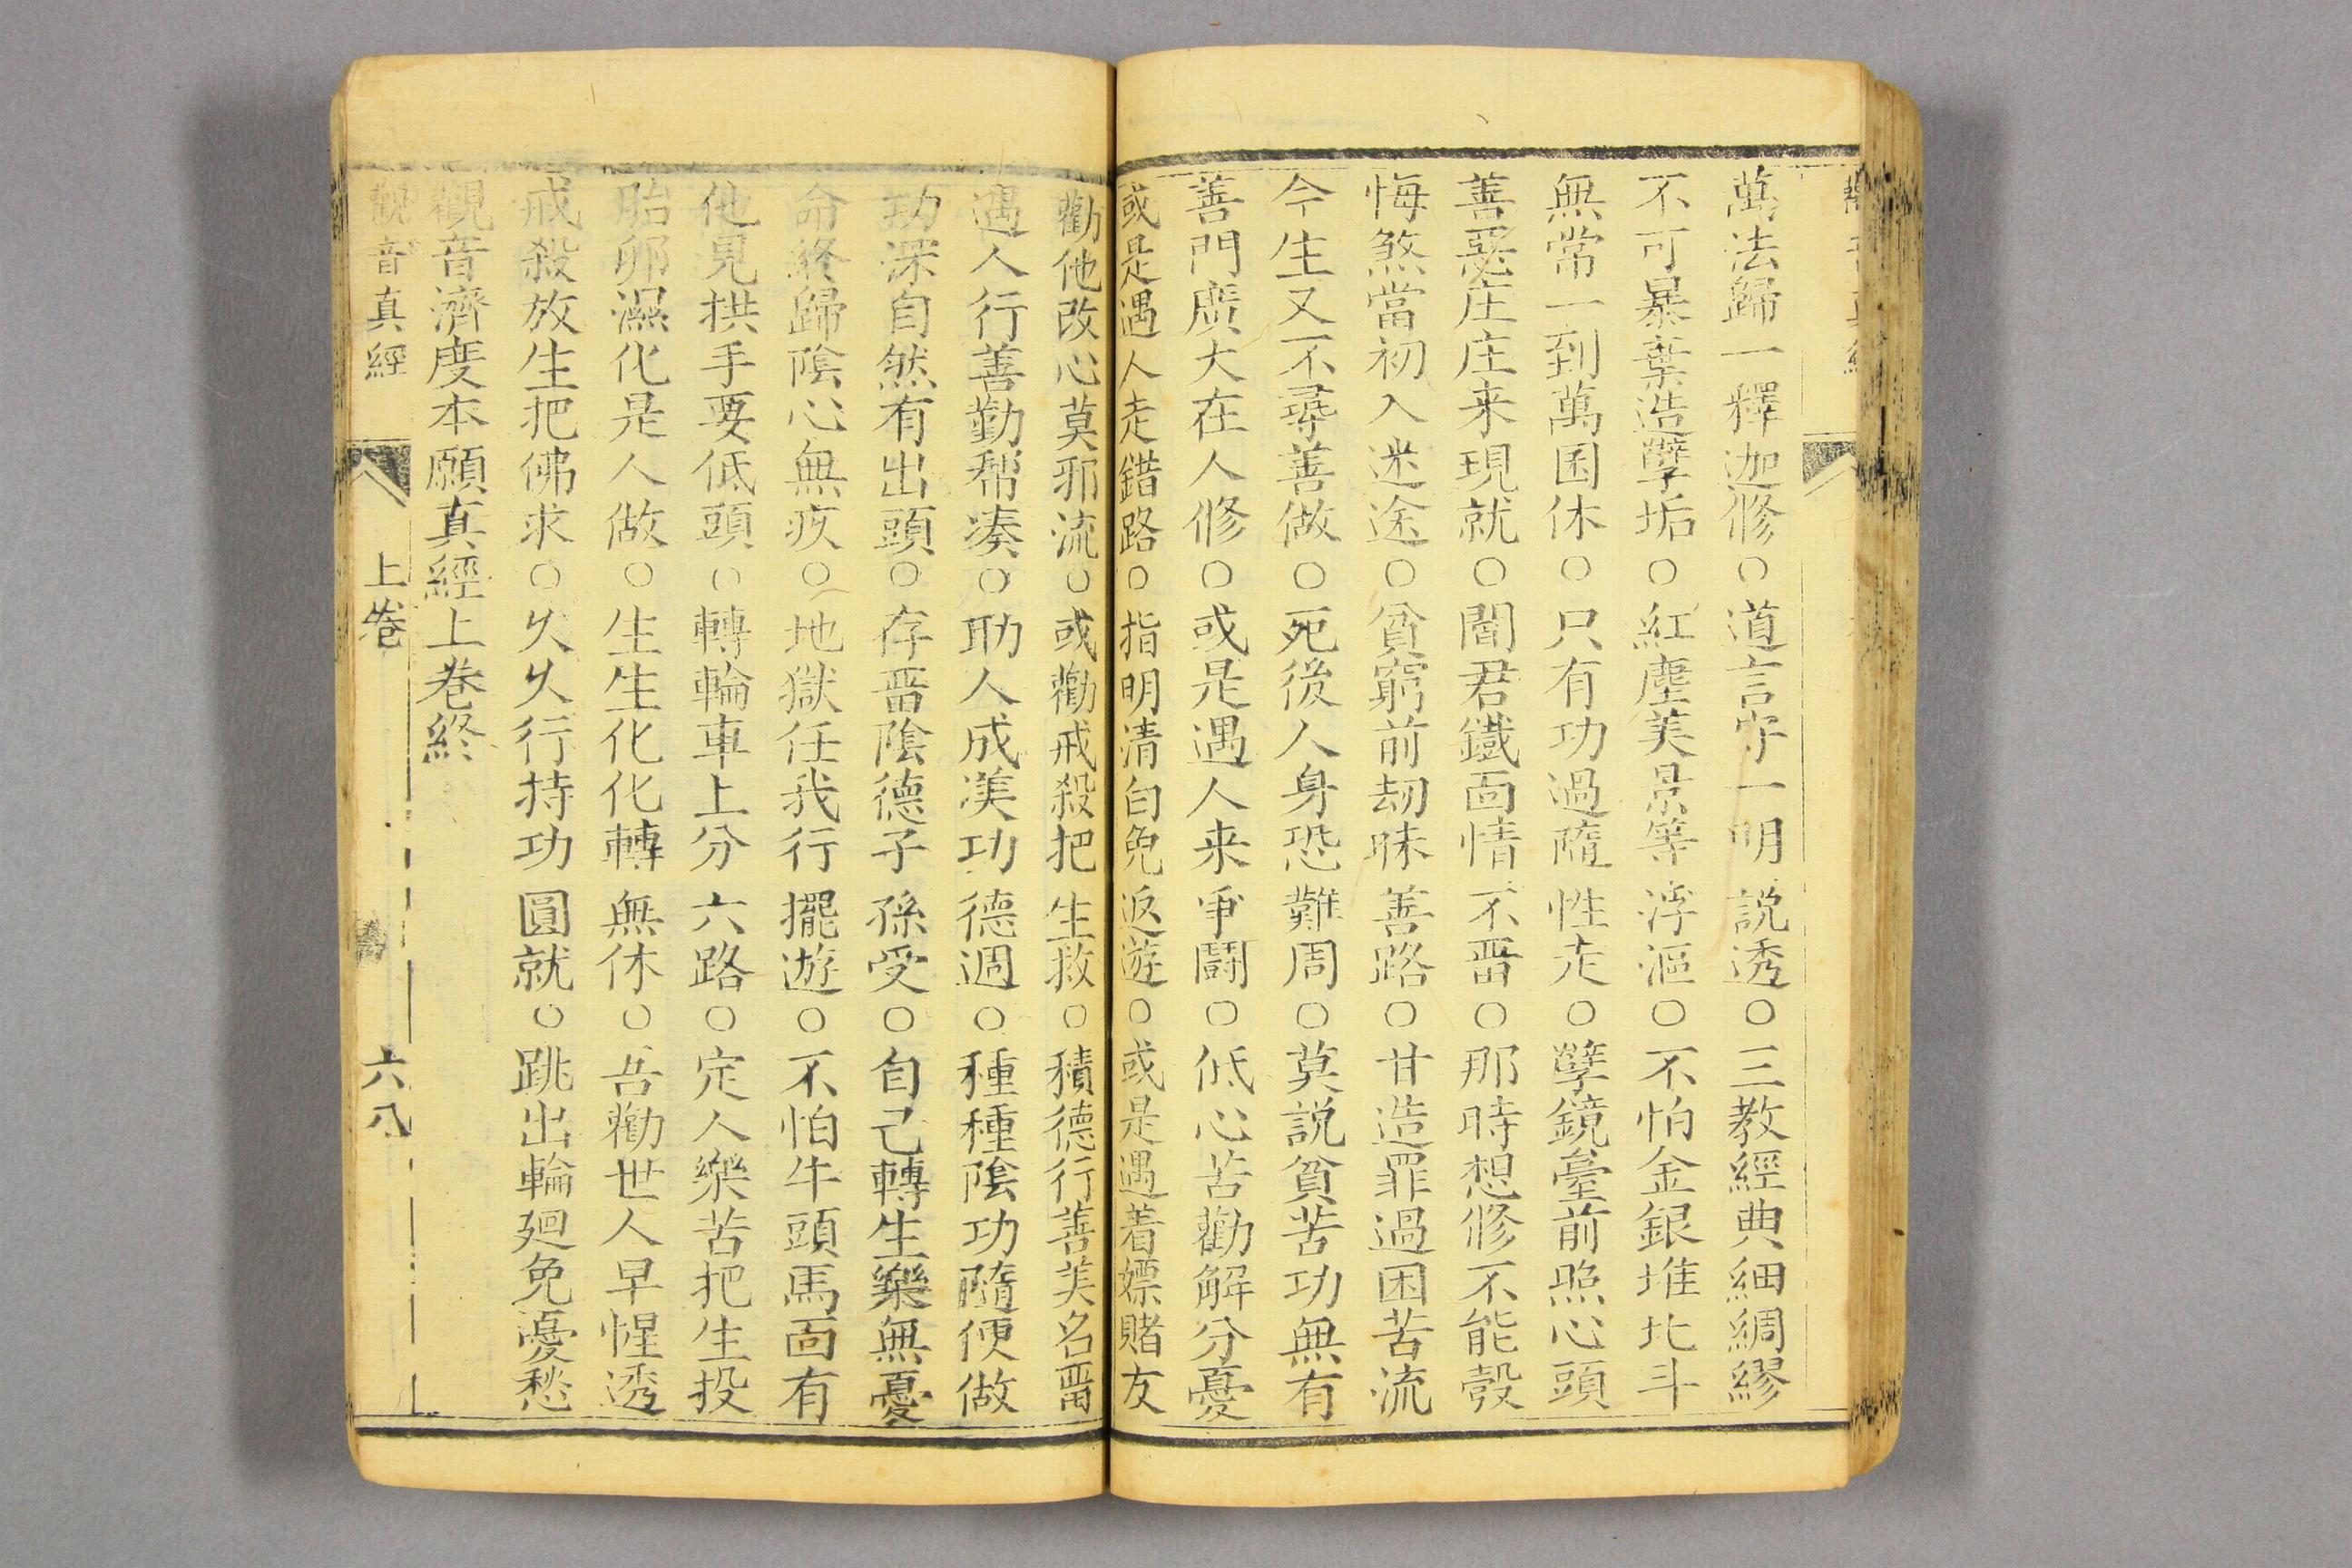 萬法歸一釋迦修○道言守一明說透○三教經典細綢繆
不可暴棄造孽垢○紅塵美景等浮漚○不怕金銀堆北斗
無常一到萬国休○只有功過隨性走○孽鏡臺前照心頭
善惡庄庄来現就○閻君鐵面情不畱○那時想修不能彀
悔煞當初入迷途○貧窮前劫昧善路○甘造罪過困苦流
今生又不尋善做○死後人身恐難周○莫說貧苦功無有
善門廣大在人修○或是遇人来爭鬪○低心苦勸解分憂
或是遇人走錯路○指明清白免返遊○或是遇着嫖賭友
勸他改心莫邪流○或勸戒殺把生救○積德行善美名畱
遇人行善勤帮凑○助人成美功德週○種種陰功隨便做
功深自然有出頭○存畱陰德子孫受○自己轉生樂無憂
命終歸陰心無疚○地獄任我行擺遊○不怕牛頭馬面有
他見拱手要低頭○轉輪車上分六路○定人樂苦把生投
胎卵濕化是人做○生生化化轉無休○吾勸世人早惺透
戒殺放生把佛求○久久行持功圓就○跳出輪廻免憂愁
觀音濟度本願真經上卷終
觀音真經 上卷 六八